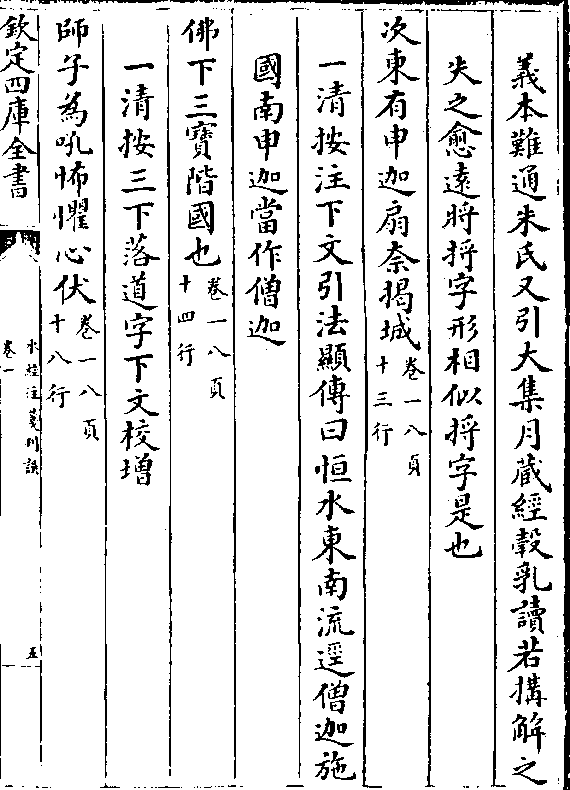 義本難通朱氏又引大集月藏經㝅乳讀若搆解之
失之愈遠將捋字形相似捋字是也
次東有申迦扇奈揭城卷一八頁十三行
一清按注下文引法顯傳曰恒水東南流逕僧迦施
國南申迦當作僧迦
佛下三寶階國也卷一八頁十四行
一清按三下落道字下文校增
師子為吼怖懼心伏卷一八頁十八行
欽定四庫全書
水經注箋刋誤
卷一
五